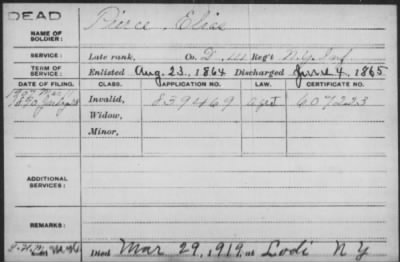 DEAD
NAME OF SOLDIER: Pierce, Elias
SERVICE: Late rank, Co. D, 111 Reg't N.Y. Inf
TERM OF SERVICE: Enlisted Aug. 23, 1864 Discharged June 4, 1865
DATE OF FILING. CLASS. APPLICATION NO. LAW. CERTIFICATE NO.
Invalid, 839469 607223
Widow,
Minor,
ADDITIONAL SERVICES:
REMARKS:
Died Mar 29, 1919, at Lodi N Y